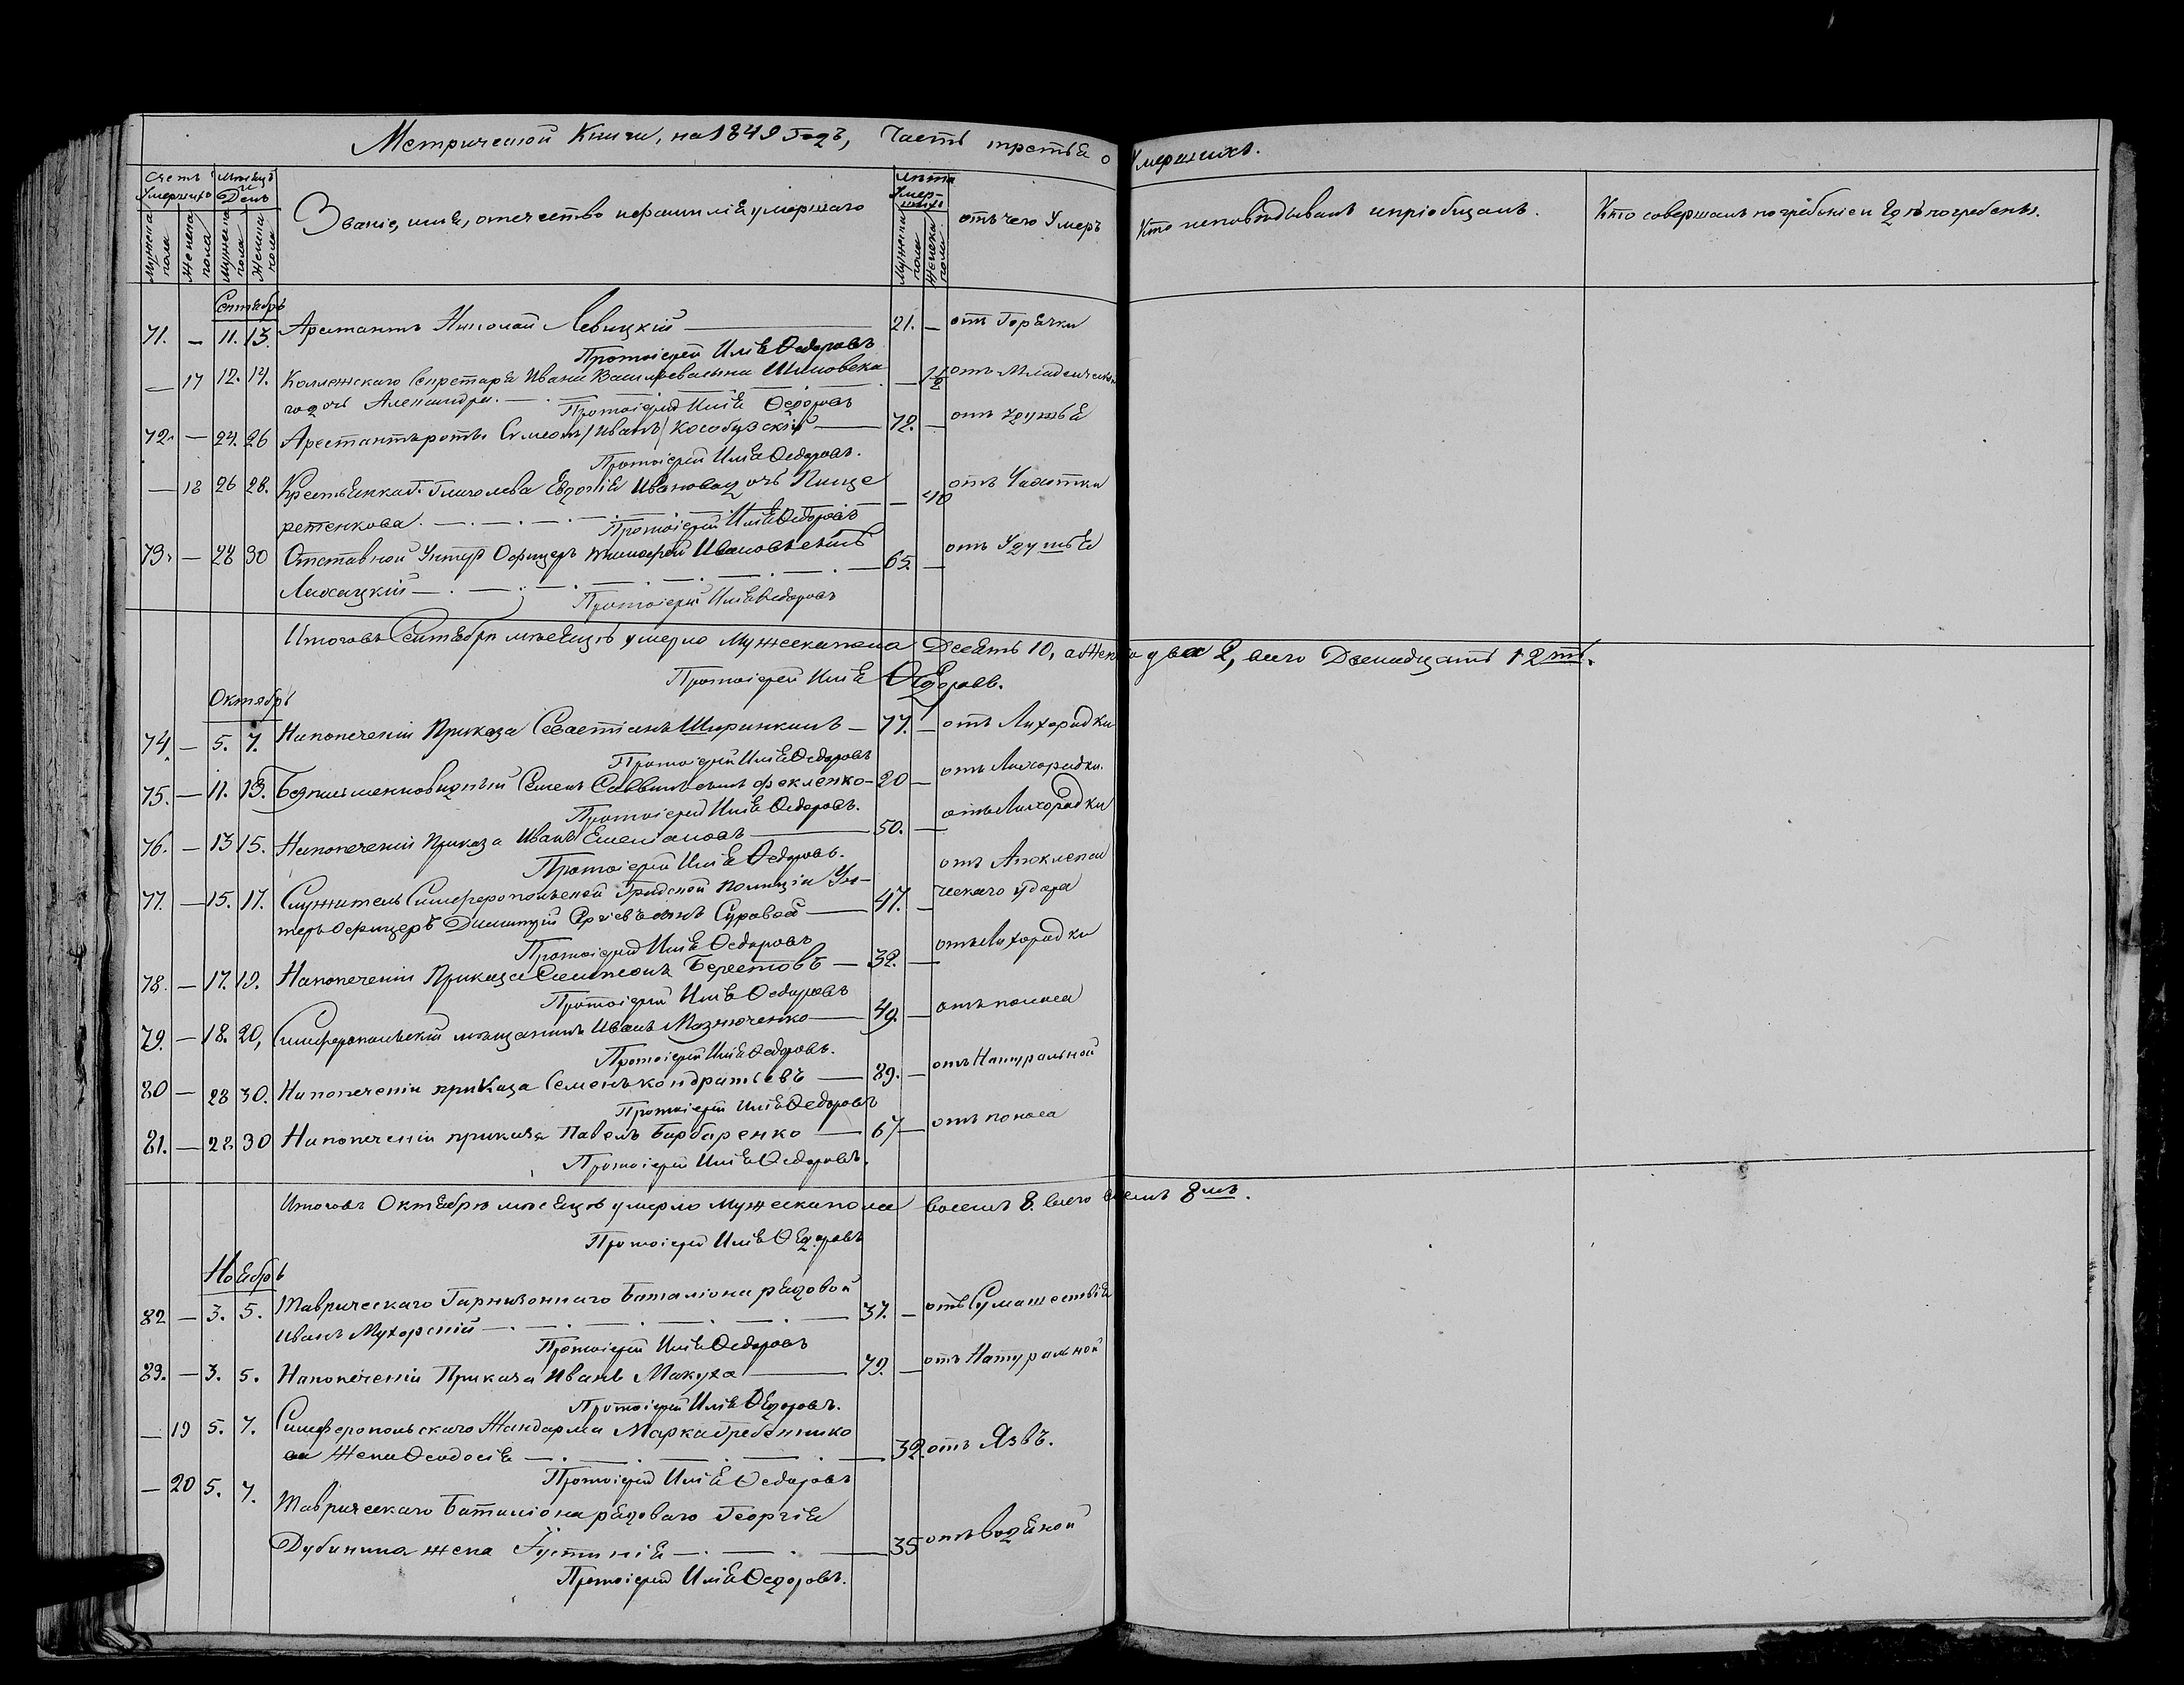 Метрической Книги, на 1849 Годъ, Часть третья о Умершихъ.
Счетъ Умершихъ
Мѣсяцъ и День
Званіе, имя, отечество и фамилія умершаго
Лѣта Умершихъ
отъ чего Умеръ
Кто исповѣдывалъ и пріобщалъ.
Кто совершалъ погребеніе и гдѣ погребены.
Мужеска пола
Женска пола
Мужеска пола
Женска пола
Мужеска пола
Женска пола
Сентябрь
71. — 11. 13. Арестантъ Николай Левицкій — 21. — отъ Горячки
Протоіерей Илія Ѳедоровъ
— 17 12. 14. Коллежскаго Секретаря Ивана Васильева сына
дочь Александра. — Протоіерей Илія Ѳедоровъ
72. — 24. 26 Арестантъ ротъ Симеонъ /Иванъ/ Кособузскій — 72. — отъ удушья
Протоіерей Илія Ѳедоровъ.
— 18 26 28. Крестьянка Евдокія Иванова дочь Пище
ретенкова. — — 40 отъ Чахотки
Протоіерей Илія Ѳедоровъ
73. — 28 30 Отставной Унтеръ Офицеръ Тимофей Ивановъ сынъ
— 65. — отъ Удушья
Протоіерей Илія Ѳедоровъ
Итого въ Сентябрѣ мѣсяцѣ умерло Мужеска пола Десять 10, а Женска два 2, всего Двенадцать 12ть.
Протоіерей Илія Ѳедоровъ.
Октябрь
74. — 5. 7. На попеченіи Приказа Севастіанъ Ширинкинъ — 77. — отъ Лихорадки
Протоіерей Илія Ѳедоровъ
75. — 11. 13. Безписьменновидный Семенъ Саввинъ сынъ Фекленко — 20 — отъ Лихорадки.
Протоіерей Илія Ѳедоровъ.
76. — 13 15. На попеченіи Приказа Иванъ Емельяновъ — 50. — отъ Лихорадки
Протоіерей Илія Ѳедоровъ.
77. — 15. 17. Служитель Симферопольской Градской Полиціи Ун-
теръ Офицеръ Димитрій Сергіевъ сынъ Суровой — 47. — отъ Апоклепси
ческаго удара
Протоіерей Илія Ѳедоровъ
78. — 17. 19. На попеченіи Приказа Симеонъ Берестовъ — 32. — отъ Лихорадки
Протоіерей Илія Ѳедоровъ
79. — 18. 20, Симферопольскій мѣщанинъ Иванъ Мазнюченко — 49. — отъ поноса
Протоіерей Илія Ѳедоровъ.
80 — 28 30. На попеченіи приказа Семенъ Кондратьевъ — 89. — отъ Натуральной
Протоіерей Илія Ѳедоровъ
81. — 28 30 На попеченіи приказа Павелъ Барбаренко — 67 — отъ поноса
Протоіерей Илія Ѳедоровъ.
Итого въ Октябрѣ мѣсяцѣ умерло Мужеска пола восемь 8. всего восемь 8мъ.
Протоіерей Илія Ѳедоровъ
Ноябрь
82 — 3. 5. Таврическаго Гарнизоннаго Баталіона рядовой
Иванъ Мухорскій — 37. — отъ Сумашествія
Протоіерей Илія Ѳедоровъ
83. — 3. 5. На попеченіи Приказа Иванъ Макуха — 79. — отъ Натуральной
Протоіерей Илія Ѳедоровъ.
— 19 5. 7. Симферопольскаго Жандарма Марка Гребеннико
ва Жена Ѳеодосія — 32. отъ Язвъ.
Протоіерей Илія Ѳедоровъ
— 20 5. 7. Таврическаго Баталіона рядоваго Георгія
Дубинина жена Іустинія — 35 отъ Водяной
Протоіерей Илія Ѳедоровъ.